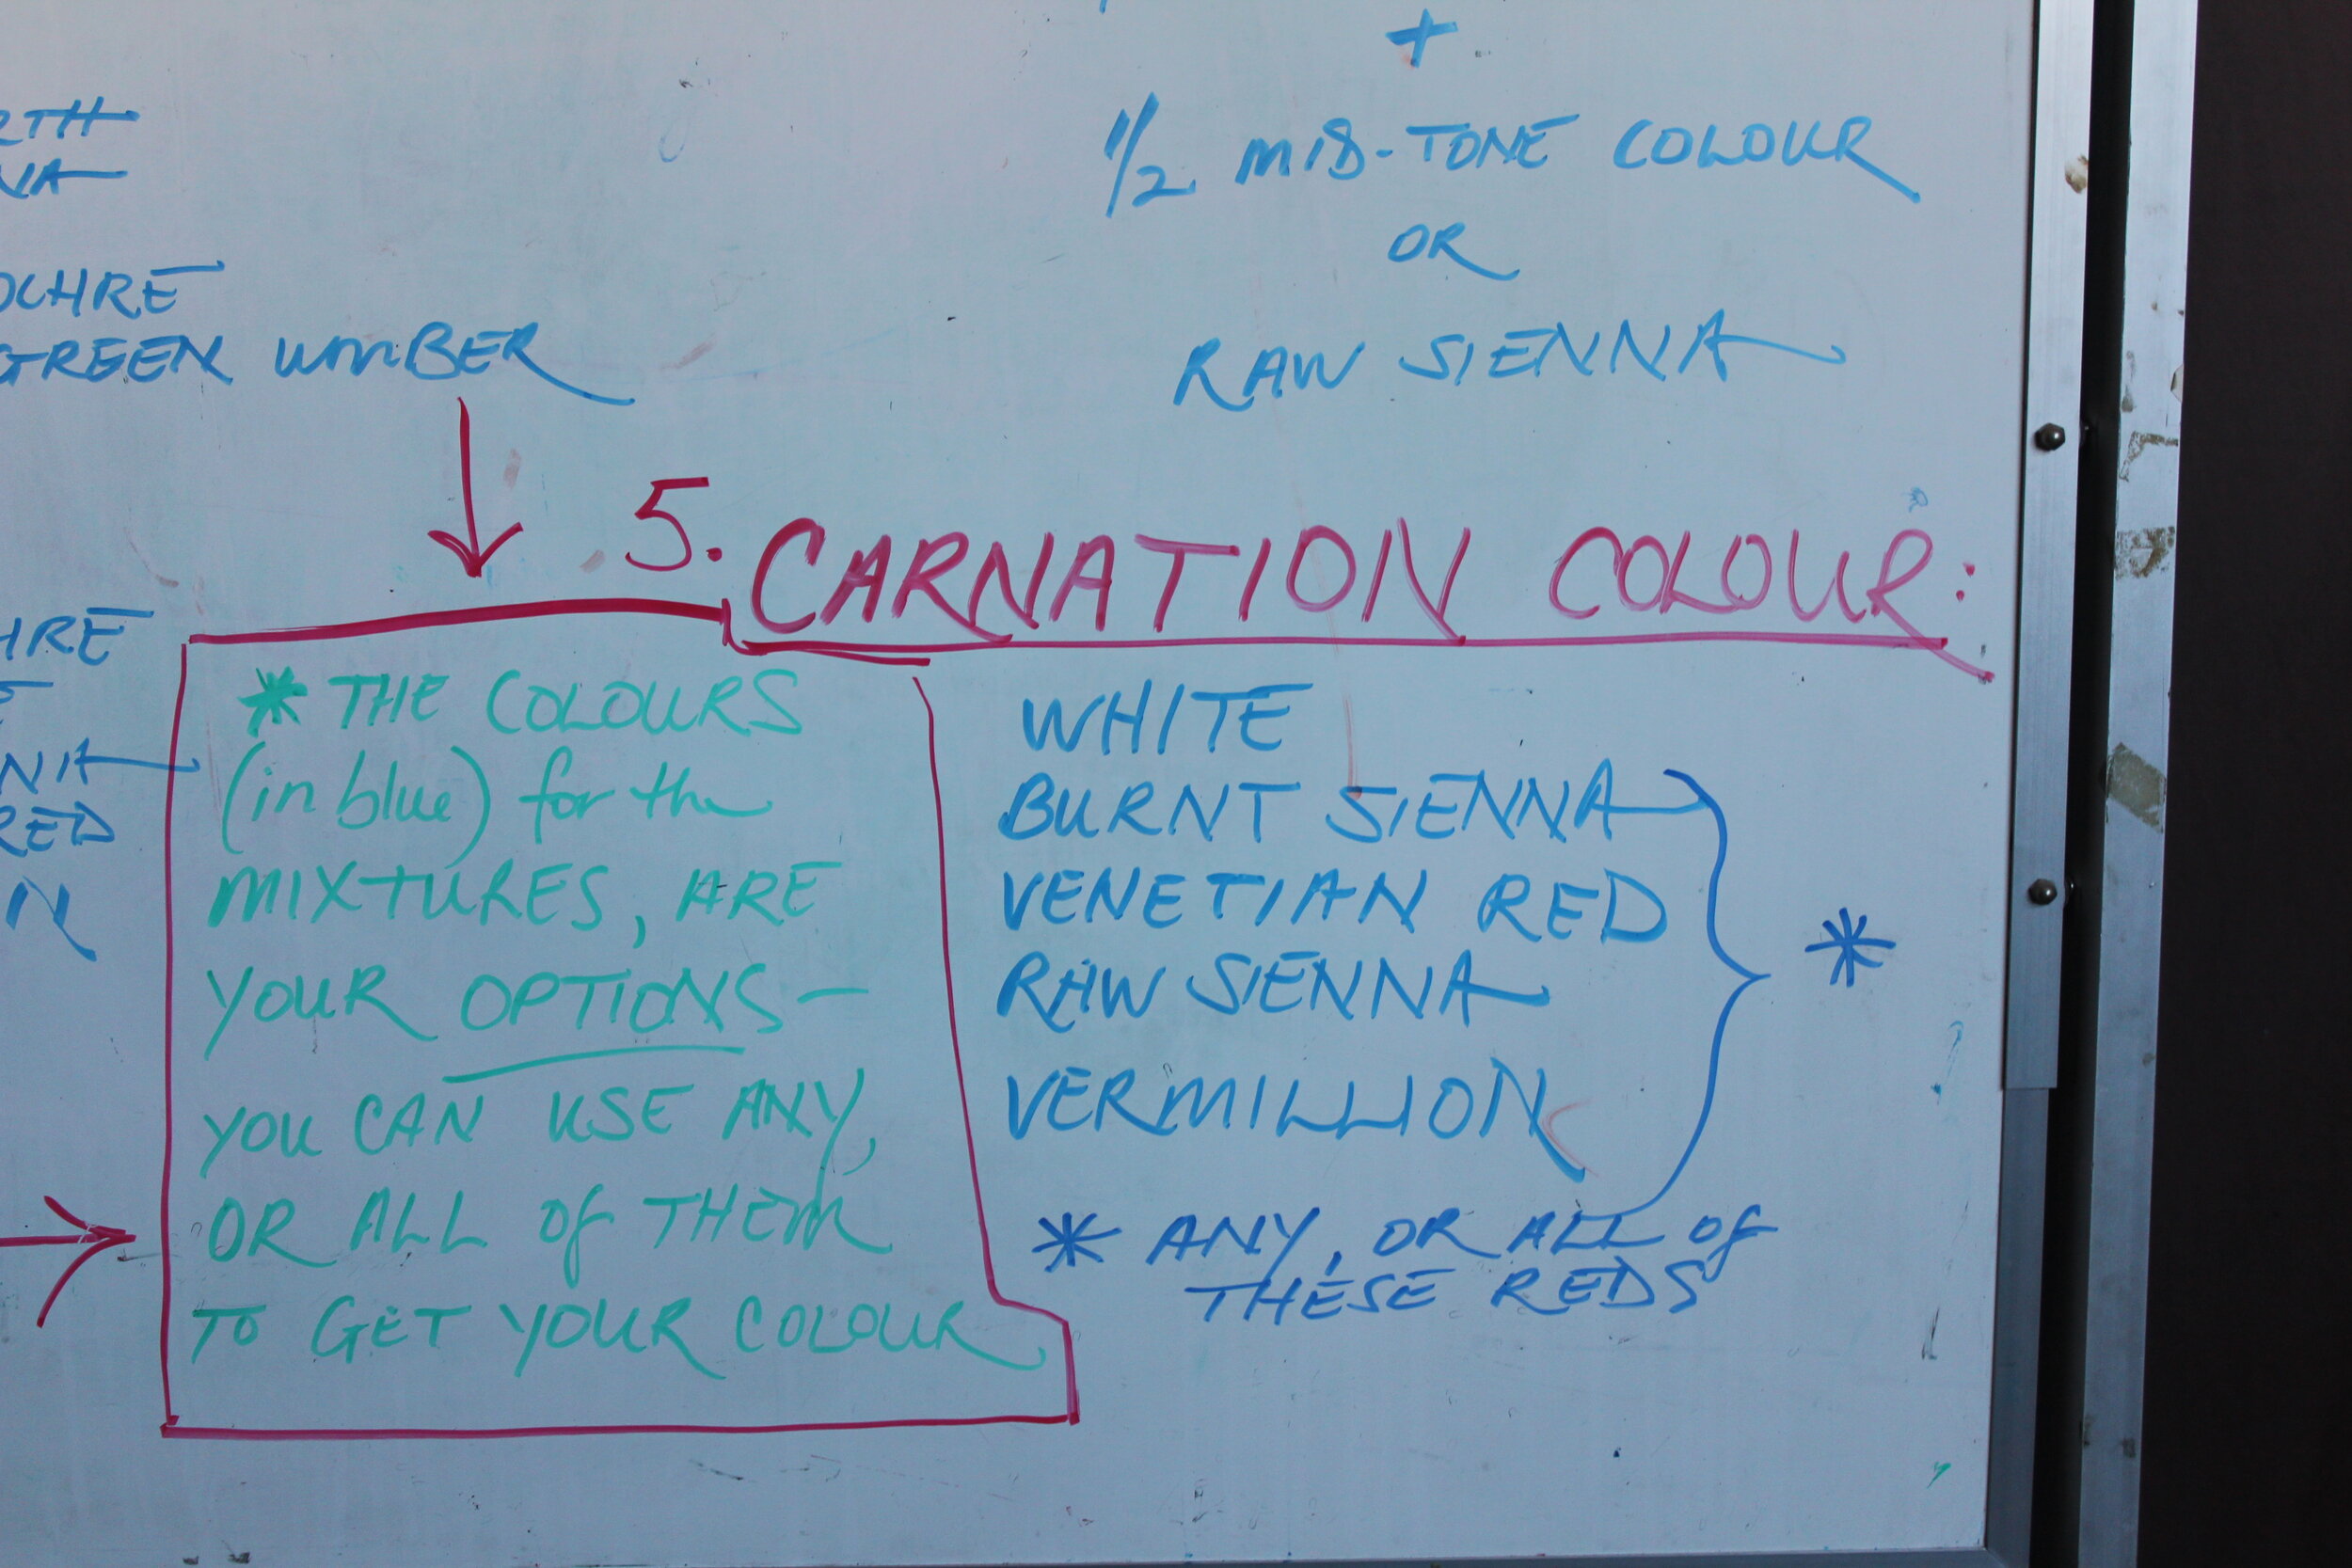 +
1/2 MID-TONE COLOUR
OR
RAW SIENNA
RTH
NA
OCHRE
GREEN UMBER
HRE
NNA
RED
N
5. CARNATION COLOUR:
WHITE
BURNT SIENNA
VENETIAN RED
RAW SIENNA
VERMILLION
*
* ANY, OR ALL Of
THESE REDS
* THE COLOURS
(in blue) for the
MIXTURES, ARE
YOUR OPTIONS —
YOU CAN USE ANY,
OR ALL Of THEM
TO GET YOUR COLOUR